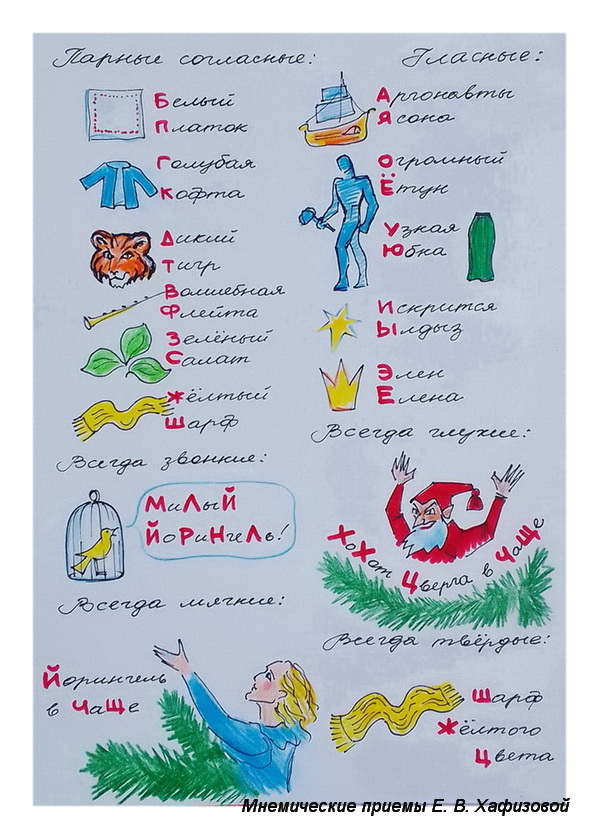 Парные согласные:
Белый
Платок
Голубая
Кофта
Дикий
Тигр
Волшебная
Флейта
Зелёный
Салат
Жёлтый
Шарф
Гласные:
Аргонавты
Ясона
Огромный
Ётун
Узкая
Юбка
Искрится
Ылдыз
Элен
Елена
Всегда звонкие:
МиЛыЙ
ЙоРиНгеЛь!
Всегда глухие:
ХоХот Цверга в ЧаЩе
Всегда мягкие:
Йорингель
в ЧаЩе
Всегда твёрдые:
Шарф
Жёлтого
Цвета
Мнемические приемы Е. В. Хафизовой